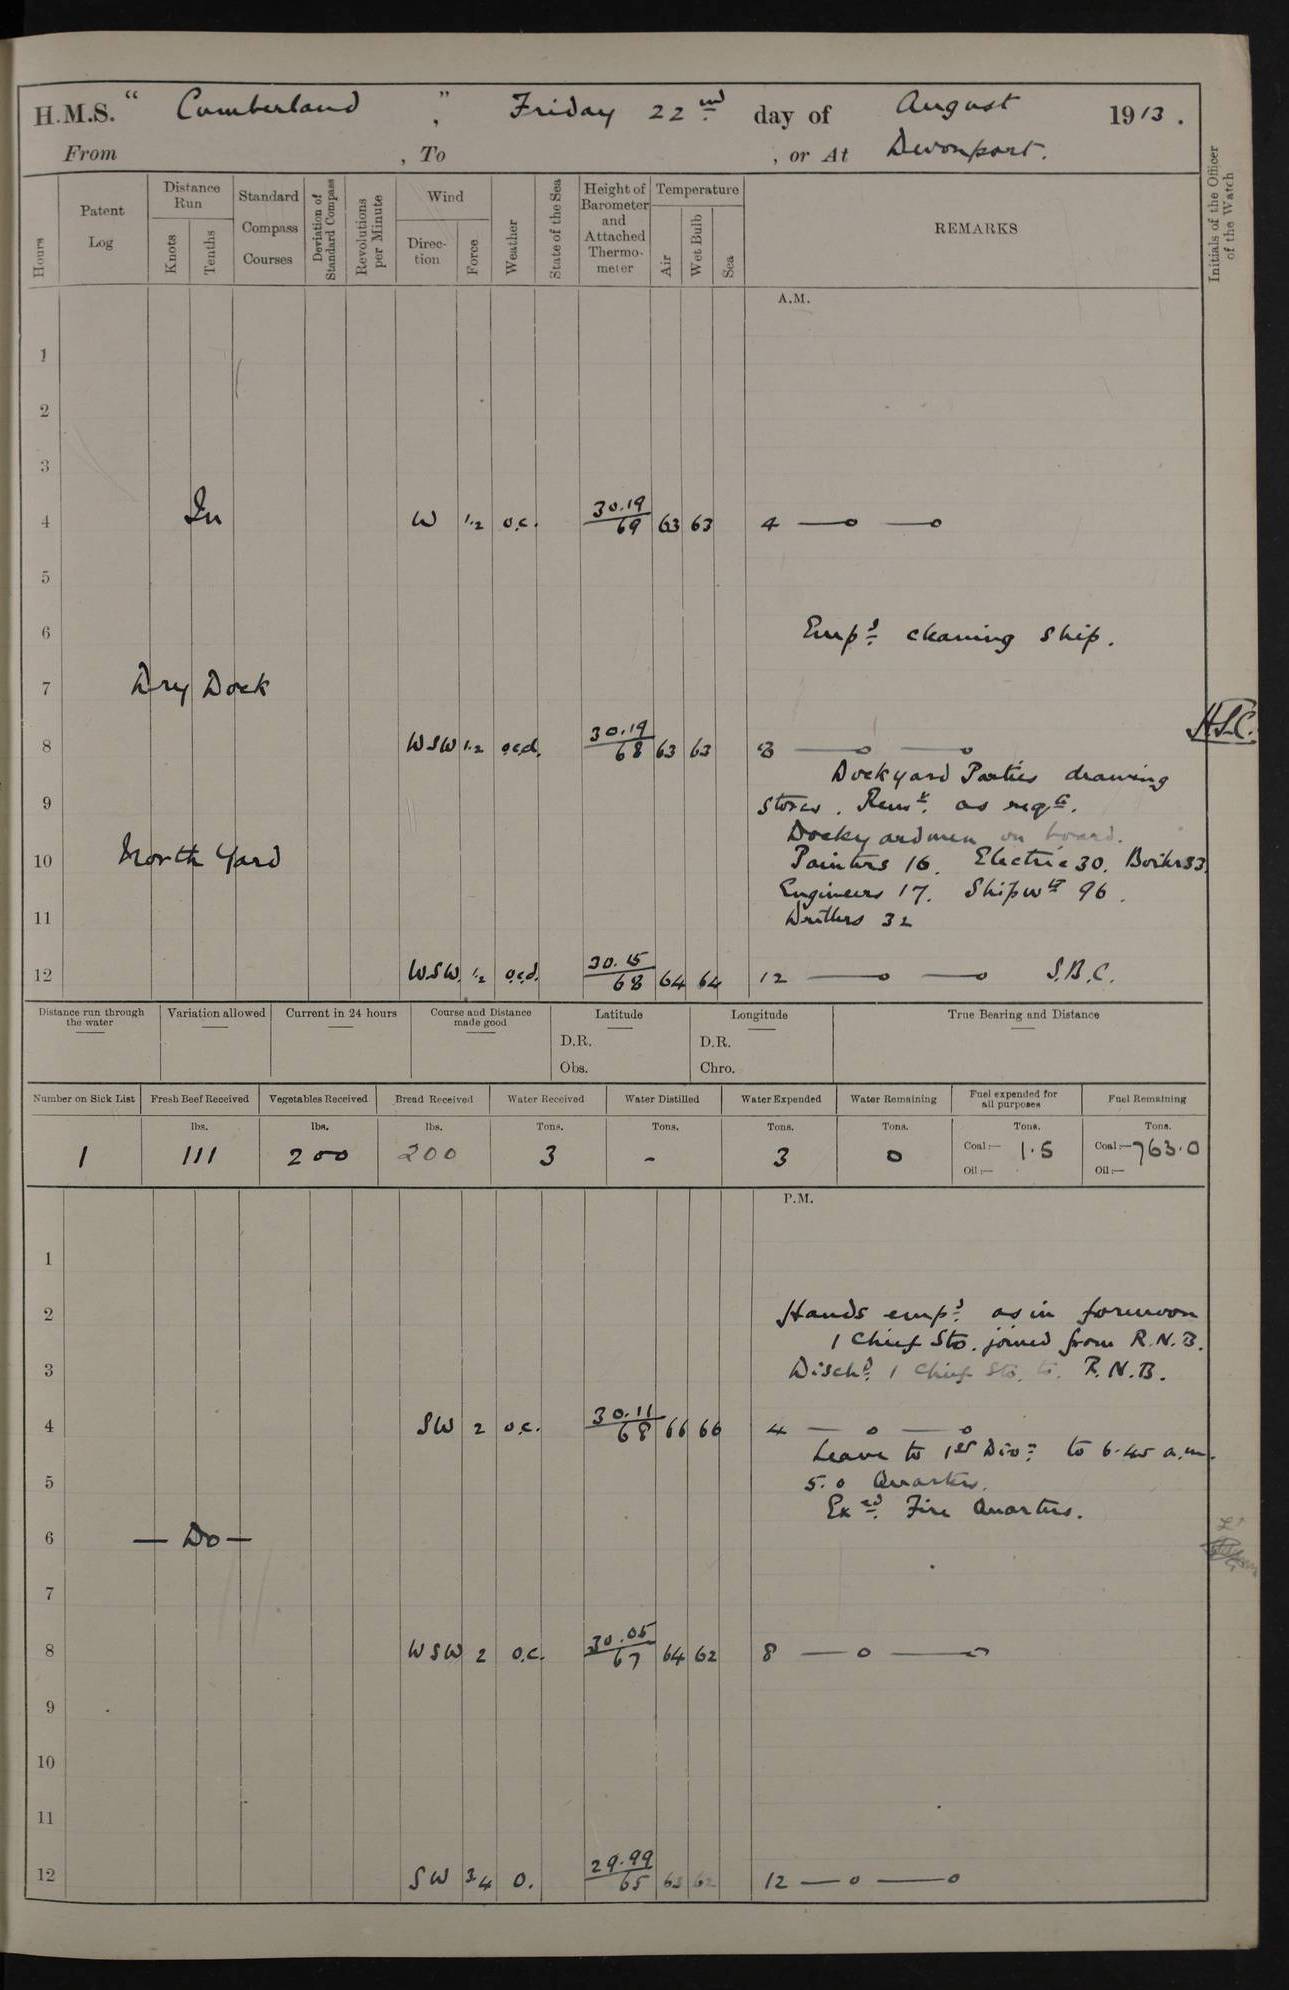 H.M.S. “ Cumberland ”, Friday 22nd day of August 1913.
From , To , or At Devonport.
Hours
Patent Log
Distance Run
Knots
Tenths
Standard Compass Courses
Deviation of Standard Compass
Revolutions per Minute
Wind
Direc-tion
Force
Weather
State of the Sea
Height of Barometer and Attached Thermo-meter
Temperature
Air
Wet Bulb
Sea
REMARKS
Initials of the Officer of the Watch
A.M.
1
2
3
In
4 W 1.2 o.c. 30.19/69 63 63 4 —o —o
5
6 Empd cleaning ship.
7 Dry Dock
H.S.C.
8 WSW 1.2 o.c.d. 30.19/68 63 63 8 —o —o
Dockyard Parties drawing
9 stores. Remr. as reqte.
Dockyardmen on board.
10 North Yard Painters 16. Electric 30. Boilers 3.
Engineers 17. Shipwts 96.
11 Writers 32
12 WSW. 1.2 o.c.d. 30.15/68 64 64 12 —o —o S.B.C.
Distance run through the water
Variation allowed
Current in 24 hours
Course and Distance made good
Latitude
D.R.
Obs.
Longitude
D.R.
Chro.
True Bearing and Distance
Number on Sick List
Fresh Beef Received
Vegetables Received
Bread Received
Water Received
Water Distilled
Water Expended
Water Remaining
Fuel expended for all purposes
Fuel Remaining
lbs. lbs. lbs. Tons. Tons. Tons. Tons. Tons. Tons.
1 111 200 200 3 - 3 0 Coal:— 1.5 Coal:— 763.0
Oil:— Oil:—
P.M.
1
2 Hands empd. as in forenoon
1 Chief Sto. joined from R.N.B.
3 Dischd. 1 Chief Sto. to. R.N.B.
4 SW 2 o.c. 30.11/68 66 66 4 — o —o
Leave to 1st Divn. to 6.45 a.m.
5 5.0 Quarters.
Exed. Fire Quarters.
6 — Do —
7
8 WSW 2 o.c. 30.05/67 64 62 8 — o —o
9
10
11
12 SW 3.4 o. 29.99/65 63 62 12 — o —o